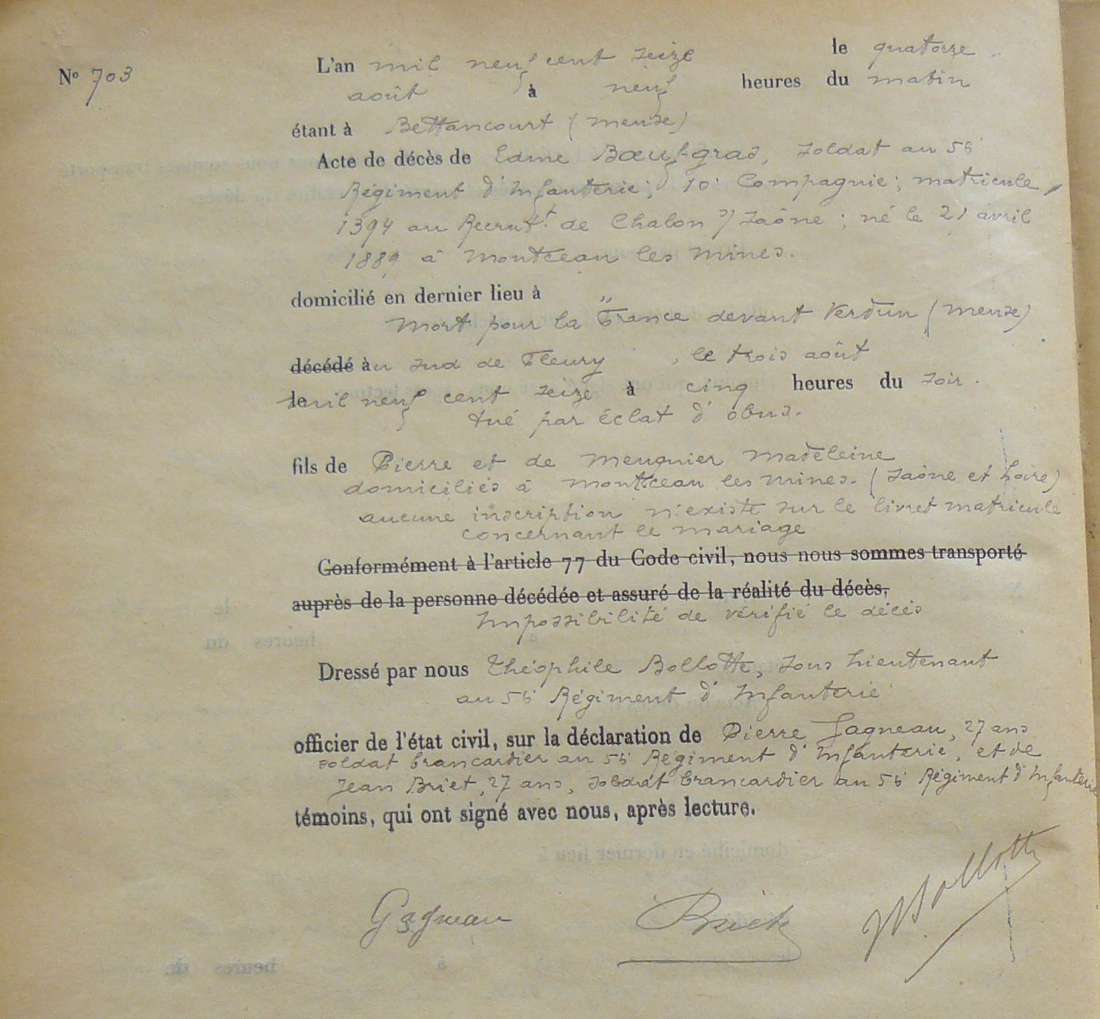 N° 703
L'an mil neuf cent seize le quatorze
août à neuf heures du matin
étant à Bettancourt (meuse)
Acte de décès de Edme Bœuf-gras, soldat au 56
Régiment d'Infanterie; 10 Compagnie; matricule
1394 au Recrut.t de Chalon s/ Saône; né le 21 avril
1889 à Montceau les mines.
domicilié en dernier lieu à "
Mort pour la France devant Verdun (meuse)
décédé au sud de Fleury, le trois août
le mil neuf cent seize à cinq heures du soir.
tué par éclat d'obus.
fils de Pierre et de Meugnier Madeleine
domiciliés à Montceau les mines. (Saône et Loire)
aucune inscription n'existe sur le livret matricule
concernant le mariage
Conformément à l'article 77 du Code civil, nous nous sommes transporté
auprès de la personne décédée et assuré de la réalité du décès,
Impossibilité de vérifié le décès
Dressé par nous Théophile Bollotte, sous Lieutenant
au 56 Régiment d'Infanterie
officier de l'état civil, sur la déclaration de Pierre Gagneau, 27 ans
soldat brancardier au 56 Régiment d'Infanterie, et de
Jean Briet, 27 ans, soldat brancardier au 56 Régiment d'Infanterie
témoins, qui ont signé avec nous, après lecture.
Gagneau Briet Bollotte